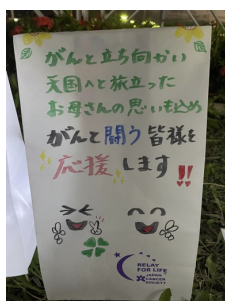 がんと立ち向かい
天国へと旅立った
お母さんの思いも込め
がんと闘う皆様を
応援します!!
RELAY
FOR LIFE
JAPAN
CANCER
SOCIETY